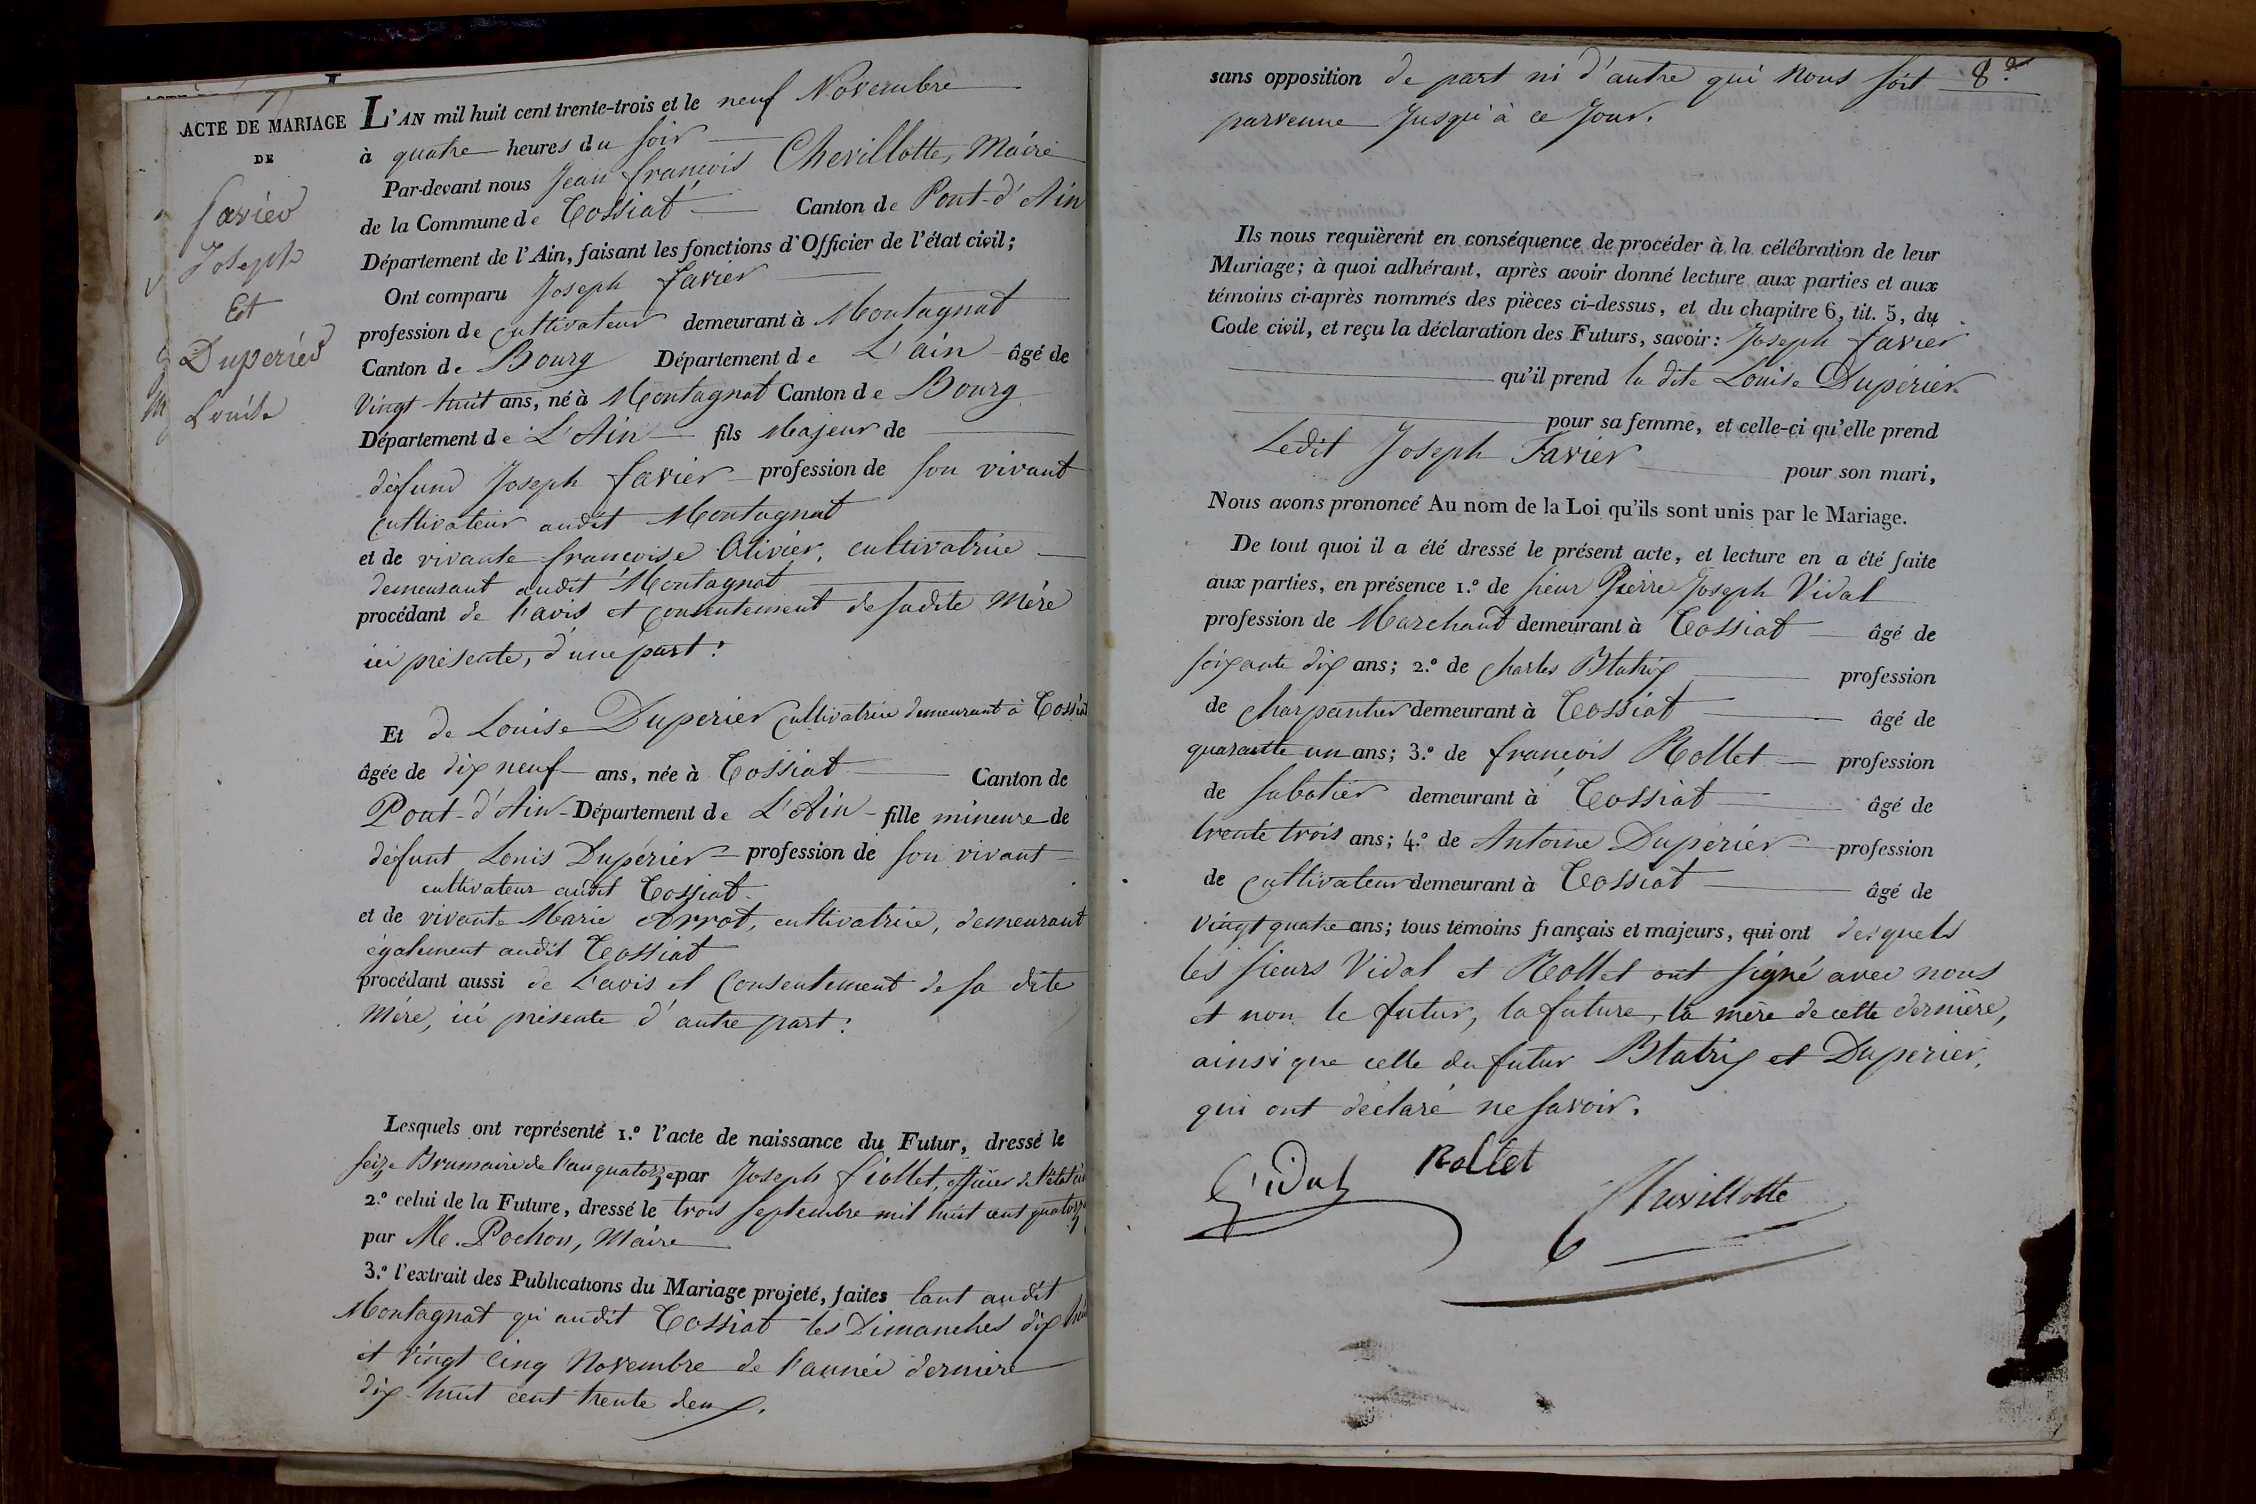 ACTE DE MARIAGE
DE
favier
Joseph
Et
Duperier
Louise
L'AN mil huit cent trente-trois et le neuf Novembre
à quatre heures du soir
Par-devant nous Jean françois Chevillotte, Maire
de la Commune de Tossiat Canton de Pont-d'Ain
Département de l'Ain, faisant les fonctions d'Officier de l'état civil;
Ont comparu Joseph favier
profession de cultivateur demeurant à Montagnat
Canton de Bourg Département de L'ain âgé de
Vingt-huit ans, né à Montagnat Canton de Bourg
Département de L'Ain fils Majeur de
défund Joseph favier profession de son vivant
cultivateur audit Montagnat
et de vivante françoise Olivier, cultivatrice
demeurant audit Montagnat
procédant de l'avis et consentement de sadite Mère
ici présente, d'une part:
Et de Louise Duperier cultivatrice demeurant à Tossiat
âgée de dix neuf ans, née à Tossiat Canton de
Pont-d'Ain Département de L'Ain fille mineure de
défunt Louis Dupérier profession de son vivant
cultivateur audit Tossiat
et de vivante Marie Arrot, cultivatrice, demeurant
également audit Tossiat
procédant aussi de L'avis et Consentement de sa dite
Mère, ici présente d'autre part:
Lesquels ont représenté 1.º l'acte de naissance du Futur, dressé le
seize Brumaire de l'an quatorze par Joseph fiollet, officier de l'état
2.º celui de la Future, dressé le trois septembre mil huit cent quatorze
par M. Pochon, Maire
3.º l'extrait des Publications du Mariage projeté, faites tant audit
Montagnat qu'audit Tossiat les Dimanches dix huit
et Vingt cinq Novembre de l'année dernière
dix-huit cent trente deux.
sans opposition de part ni d'autre qui nous soit
parvenue Jusqu'à ce Jour.
Ils nous requièrent en conséquence de procéder à la célébration de leur
Mariage; à quoi adhérant, après avoir donné lecture aux parties et aux
témoins ci-après nommés des pièces ci-dessus, et du chapitre 6, tit. 5, du
Code civil, et reçu la déclaration des Futurs, savoir: Joseph favier
qu'il prend la dite Louise Dupérier
pour sa femme, et celle-ci qu'elle prend
Ledit Joseph Favier
pour son mari,
Nous avons prononcé Au nom de la Loi qu'ils sont unis par le Mariage.
De tout quoi il a été dressé le présent acte, et lecture en a été faite
aux parties, en présence 1.º de sieur Pierre Joseph Vidal
profession de Marchand demeurant à Tossiat âgé de
soixante dix ans; 2.º de Charles Blatrix profession
de Charpentier demeurant à Tossiat âgé de
quarante un ans; 3.º de françois Rollet profession
de sabotier demeurant à Tossiat âgé de
trente trois ans; 4.º de Antoine Dupérier profession
de cultivateur demeurant à Tossiat âgé de
vingt quatre ans; tous témoins français et majeurs, qui ont desquels
les sieurs Vidal et Rollet ont signé avec nous
et non le futur, la future, la mère de cette dernière,
ainsi que celle du futur Blatrix et Duperier,
qui ont déclaré ne savoir.
Vidal Rollet
Chevillotte